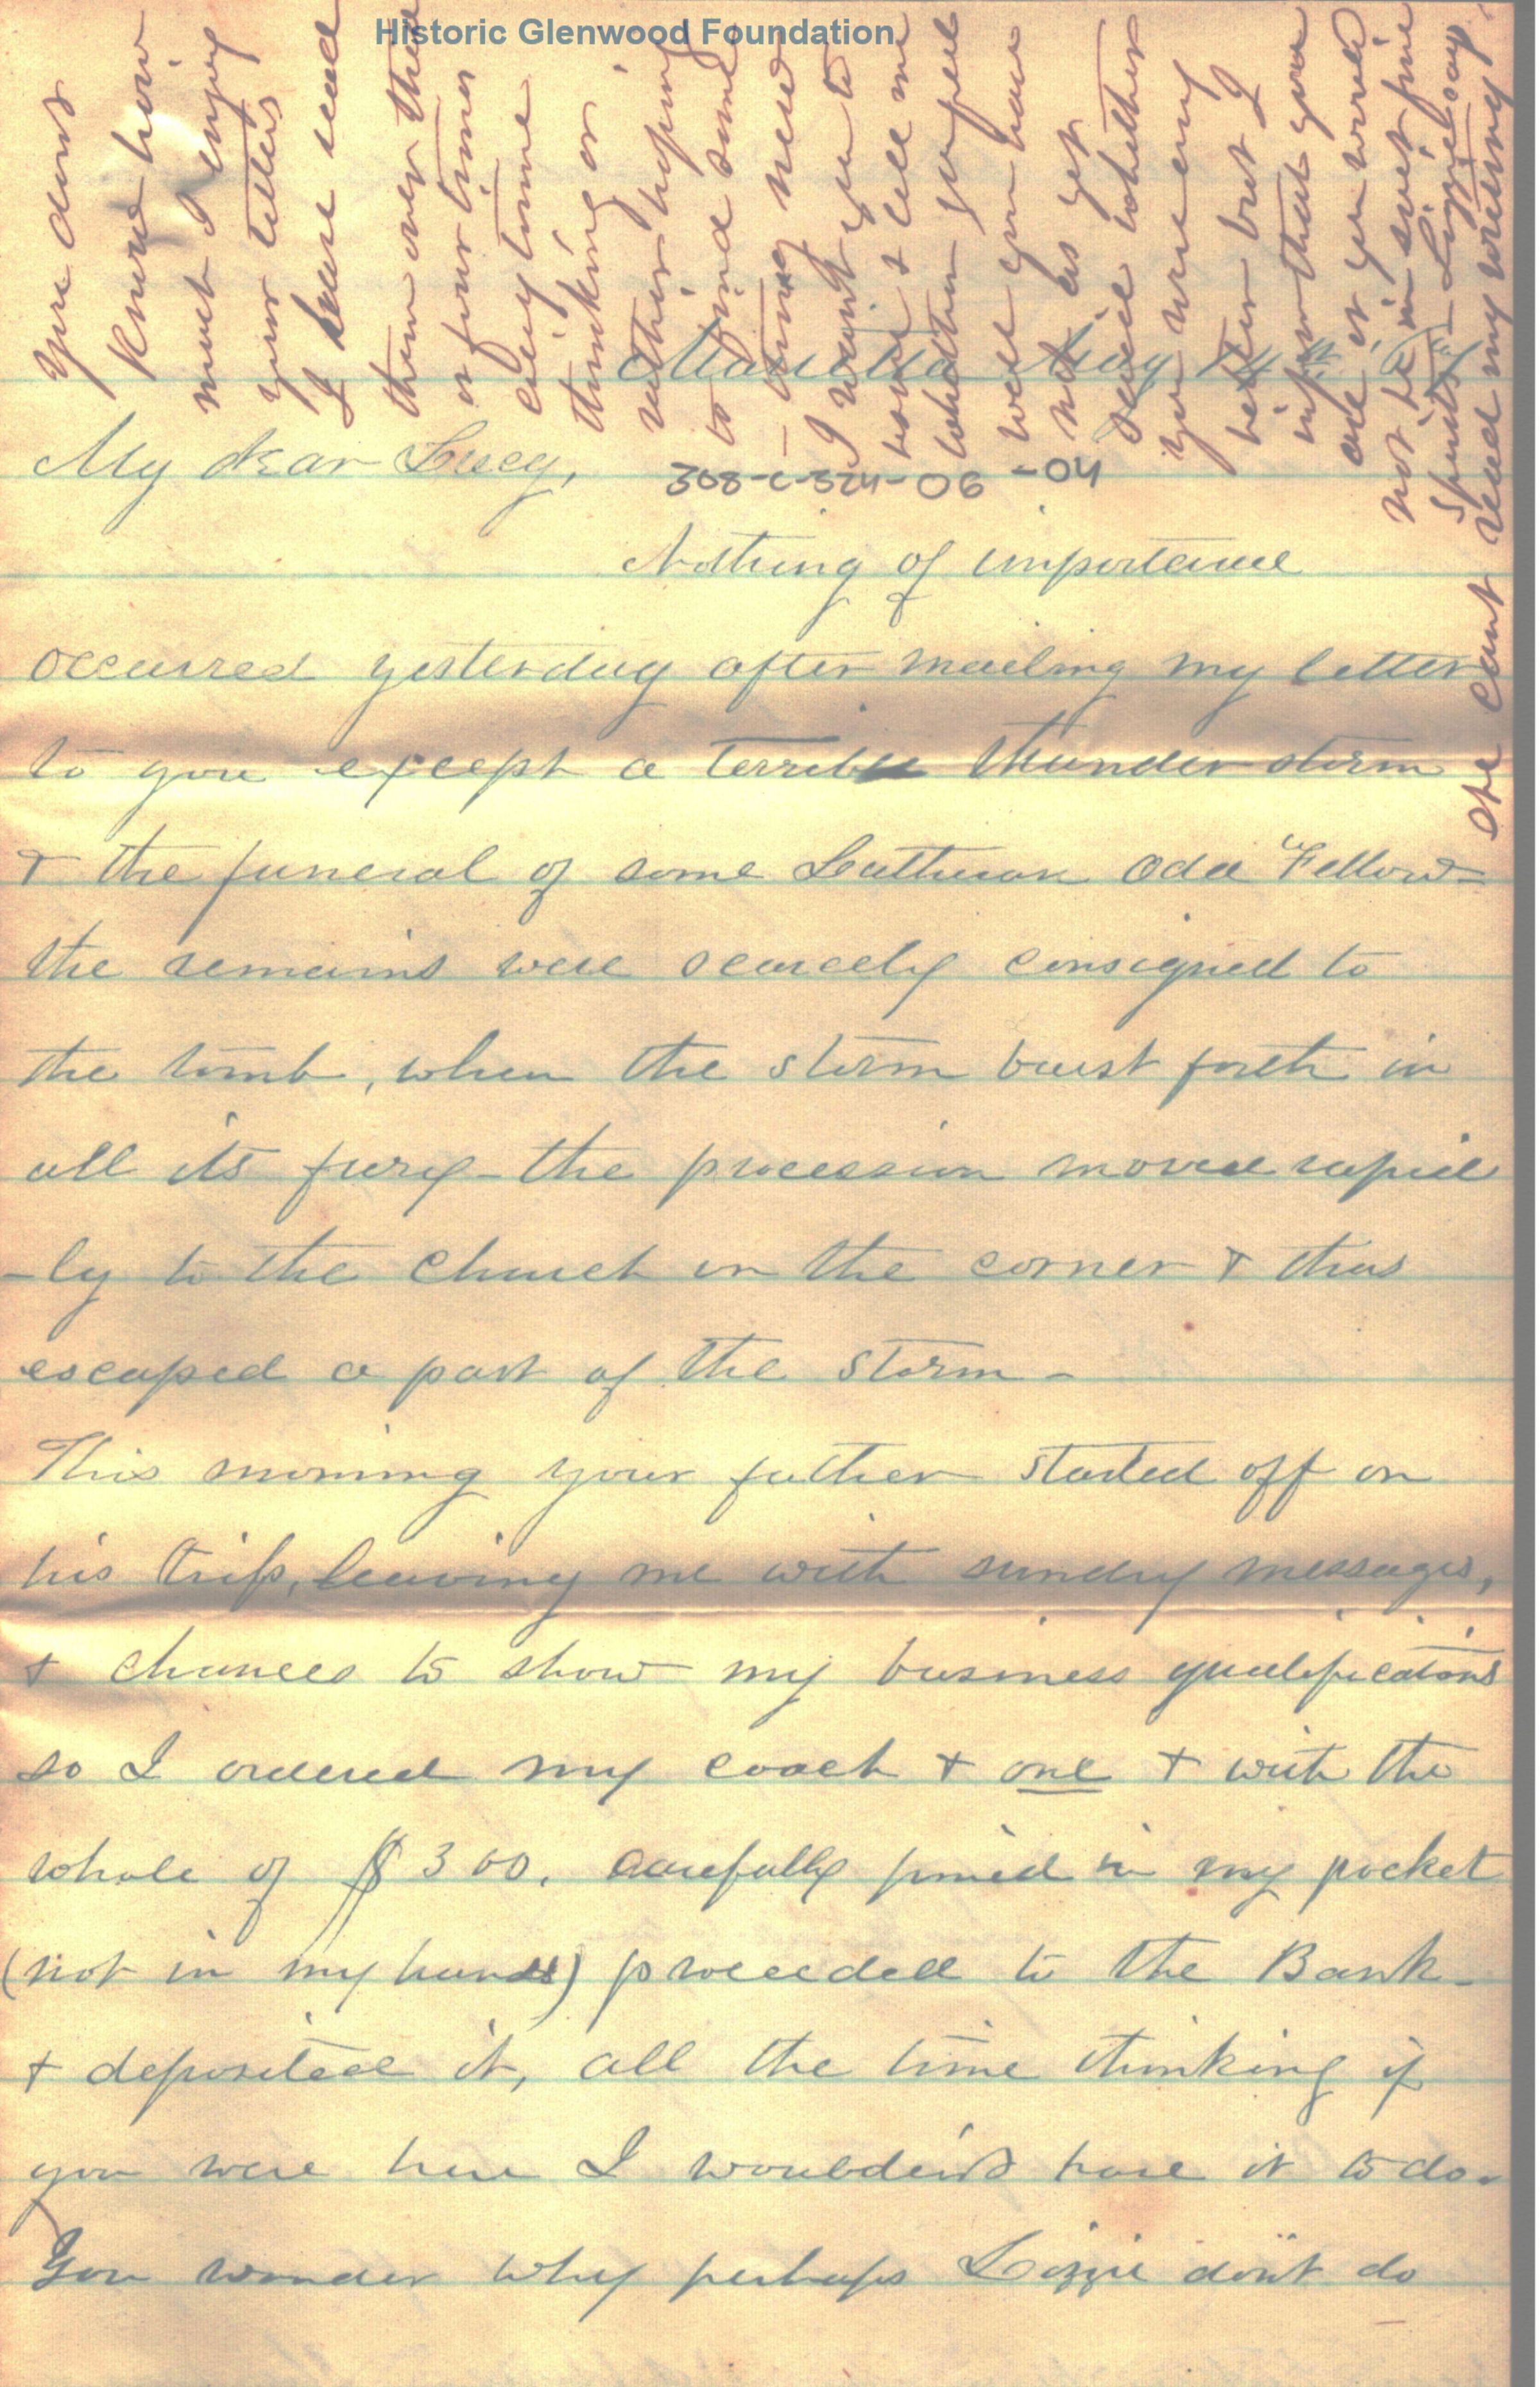 Historic Glenwood Foundation
Marietta May 14th
My dear Lucy,
308-C-S24-06-04
Nothing of importance
occurred yesterday after mailing my letter
to you except a terrible thunder storm
& the funeral of some Odd Fellow-
the remains were scarcely consigned to
the tomb, when the storm burst forth in
all its fury - the procession moved rapid
-ly to the church on the corner & thus
escaped a part of the storm -
This morning your father started off on
his trip, leaving me with sundry messages,
& chances to show my business qualifications
so I ordered my coach & one & with the
whole of $300. carefully pinned in my pocket
(not in my hands) proceeded to the Bank -
& deposited it, all the time thinking if
you were here I wouldn't have it to do.
You wonder why perhaps Lizzie don't do
You dont
know how
much I enjoy
your letters
I have read
them over three
or four times
every time
thinking or
rather hoping
to find some
-thing new
I want you to
& tell me
whether you feel
well you have
not as yet
said whether
you were any
better but I
infer that you
are or you would
not be in such fine
spirits - Lizzie says
she cant read my writing